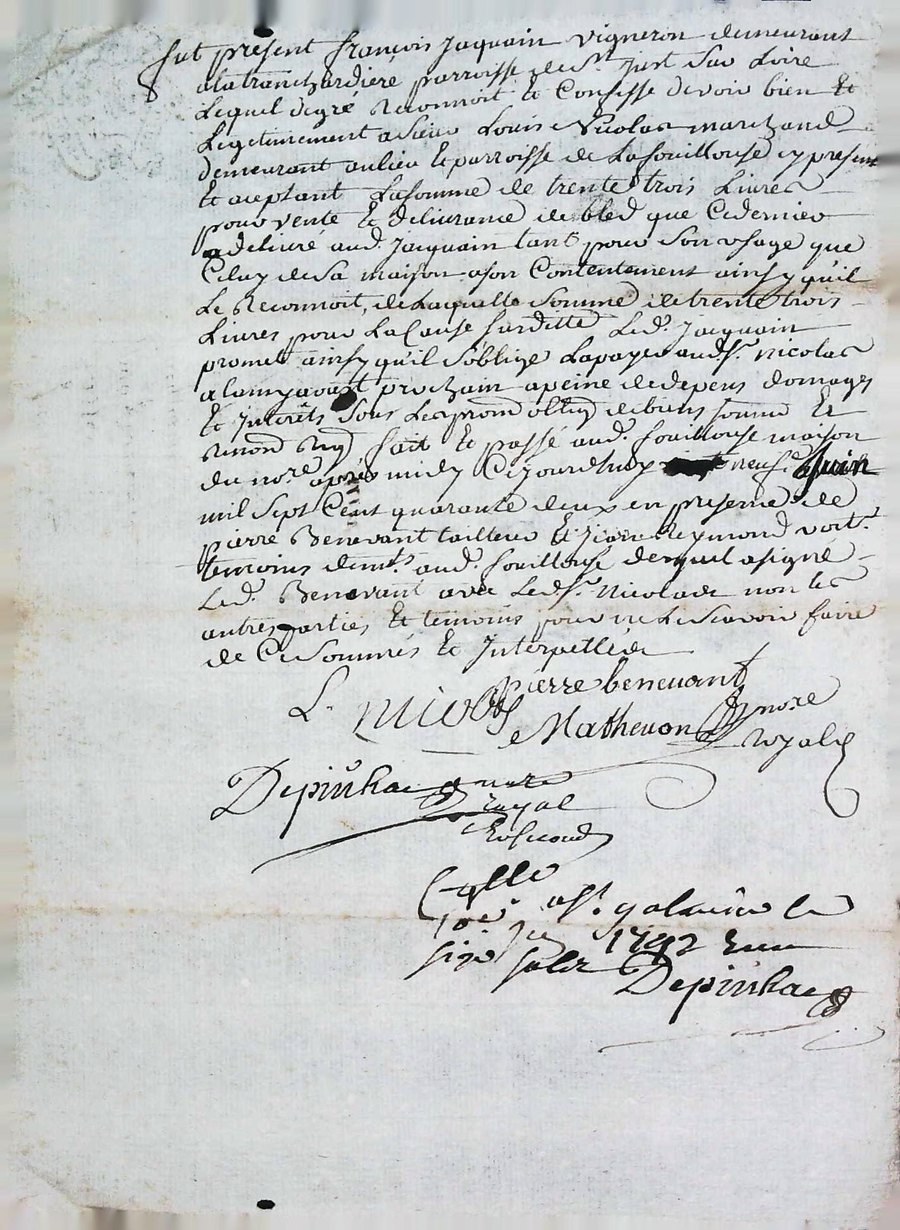 fut présent françois Jaquain vigneron demeurant
ala tranchardiere parroisse de St Just Sur Loire
Lequel de gré Reconnoit et Confesse devoir bien et
Legitimement a Sieur Louis Nicolas marchand
demeurant au lieu et parroisse de Lafouillouse cy present
et aceptant La somme de trente trois Livres
pour vente et delivrance de bled que Ce dernier
a delivré aud. Jacquain tant pour Son usage que
Celuy de Sa maison a son Contentement ainsy quil
Le Reconnoit, de Laquelle Somme de trente trois
Livres pour La Cause surditte Led. Jacquain
promet ainsy qu'il s'oblige La payer aud. Sr. Nicolas
a prochain a peine de depens domages
et Interets Sous Les prom oblig de biens soumis et
Renond Fait et passé aud. fouillouse maison
du nore. apres midy Cejourdhuy neuf Juin
mil Sept Cent quarante deux en presence de
pierre Benevant tailleur et Jean Reymond voit.
temoins demts. aud. fouillouse desquel a signé
Led. Benevant avec Led. Sr. Nicolas non les
autres parties et temoins pour ne Le Scavoir faire
de Ce Sommés et Interpellés
L. nicolas Pierre benevant
Mathevon nore
royal
Depinhac nore
royal
Collé
a St. galmier le
1742 Reçu
six solz Depinhac